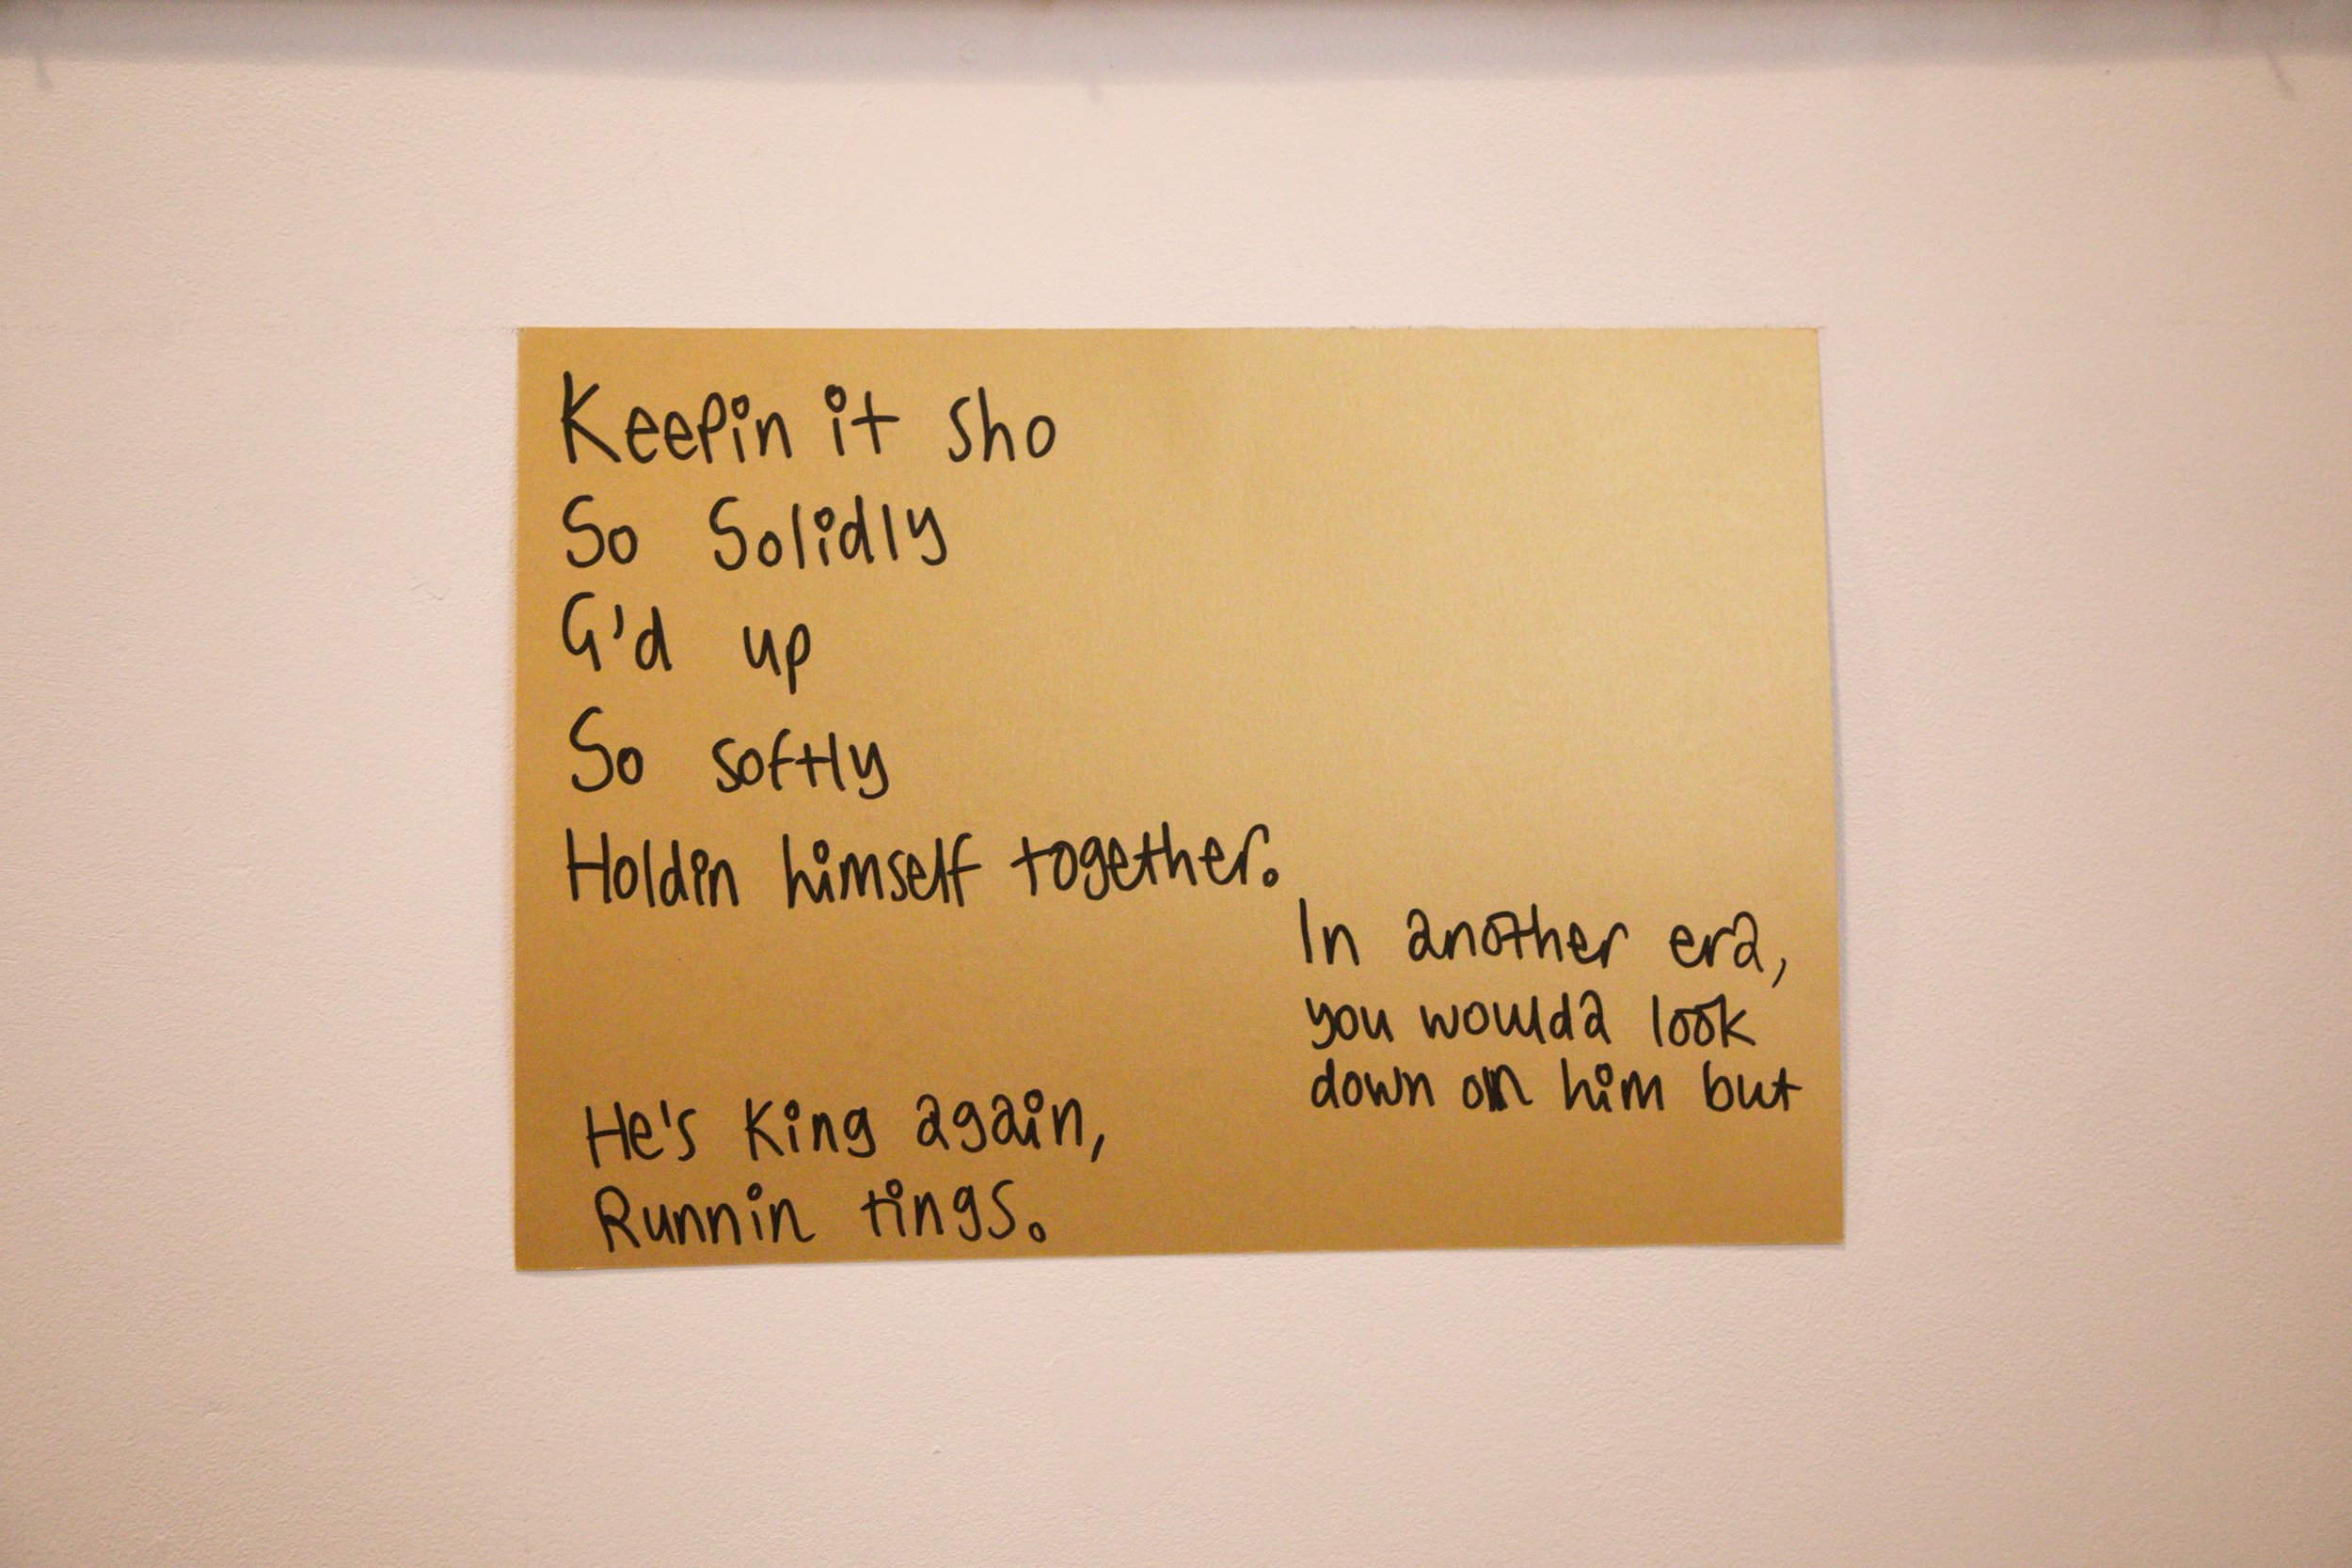 Keepin it sho
So Solidly
G'd up
So softly
Holdin himself together.
In another era,
you woulda look
down on him but
He's King again,
Runnin tings.